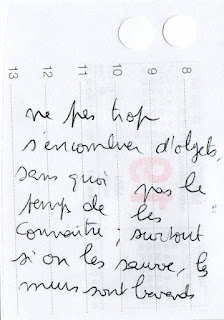 13 12 11 10 9 8
ne pas trop
s'encombrer d'objets,
sans quoi pas le
temps de les
connaître ; surtout
si on les sauve, les
murs sont bavards